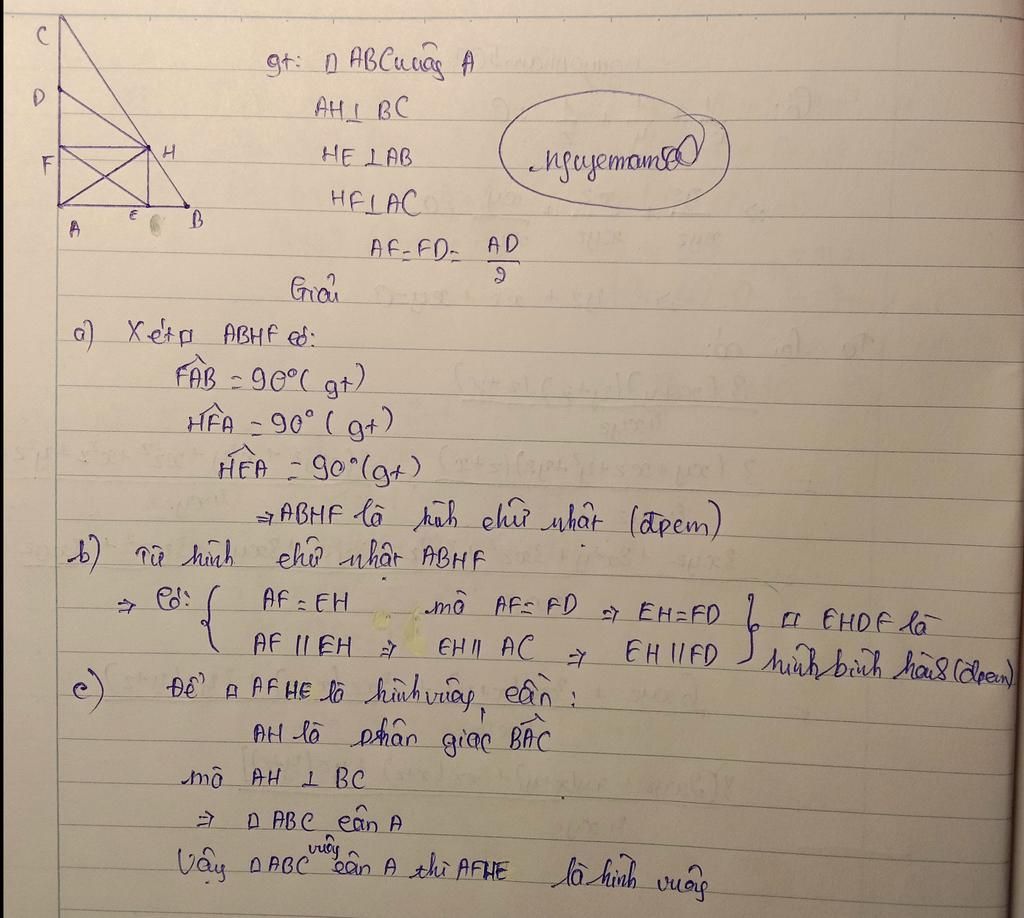 C
D
F
H
A
E
B
gt: △ ABC vuông A
AH ⊥ BC
HE ⊥ AB
HF ⊥ AC
AF = FD = AD/2
nguyemam50
Giải
a) Xét □ ABHF có:
FAB = 90° (gt)
HFA = 90° (gt)
HEA = 90° (gt)
⇒ ABHF là hình chữ nhật (đpcm)
b) Từ hình chữ nhật ABHF
⇒ Có: { AF = EH mà AF = FD ⇒ EH = FD } □ EHDF là
AF // EH ⇒ EH // AC ⇒ EH // FD hình bình hành (đpcm)
c) Để □ AFHE là hình vuông cần:
AH là phân giác BAC
mà AH ⊥ BC
⇒ △ ABC cân A
Vậy △ ABC vuông cân A thì AFHE là hình vuông